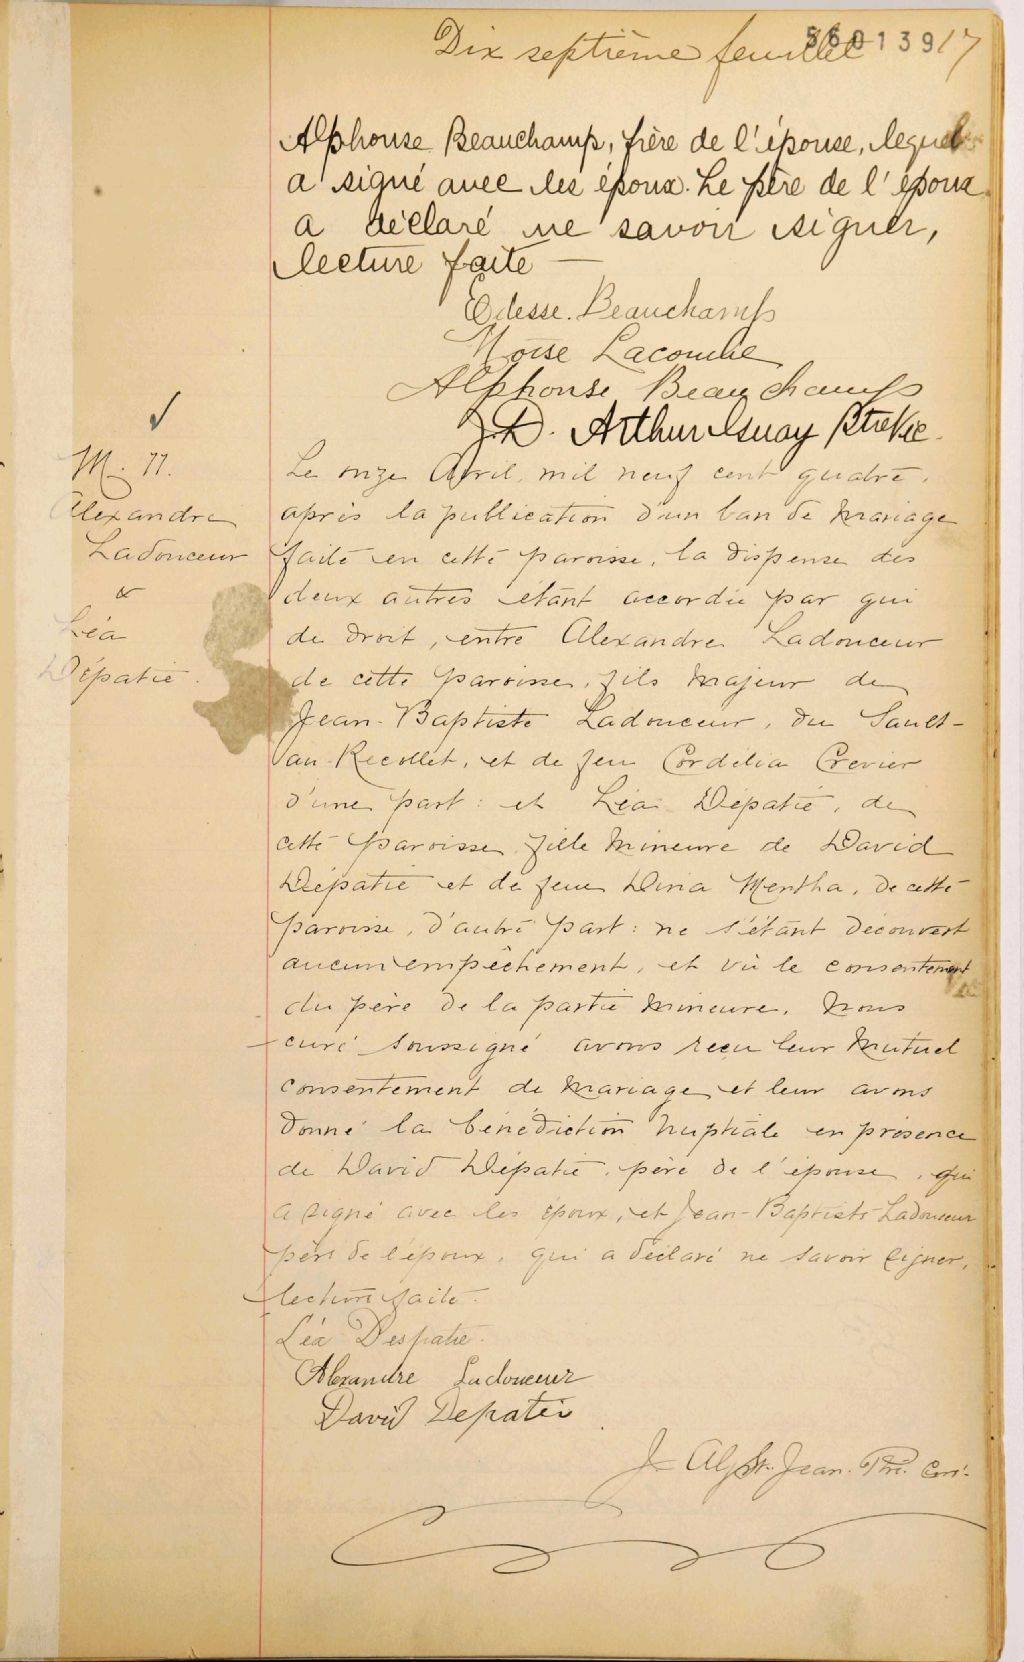 Dix septième feuillet 560139 17
Alphonse Beauchamp, frère de l'épouse, lequel
a signé avec les époux. Le père de l'époux
a déclaré ne savoir signer,
lecture faite —
Edesse. Beauchamp
Moïse Lacombe
Alphonse Beauchamp
J. D. Arthur Guay Ptre Vic.
M. 11.
Alexandre
Ladouceur
&
Léa
Dépatie.
Le onze Avril, mil neuf cent quatre,
après la publication d'un ban de mariage
faite en cette paroisse, la dispense des
deux autres étant accordée par qui
de droit, entre Alexandre Ladouceur
de cette paroisse, fils majeur de
Jean-Baptiste Ladouceur, du Sault-
au-Recollet, et de feu Cordélia Crevier
d'une part: et Léa Dépatie, de
cette paroisse fille mineure de David
Dépatie et de feue Dina Mentha, de cette
paroisse, d'autre part: ne s'étant découvert
aucun empêchement, et vû le consentement
du père de la partie mineure, Nous
curé soussigné avons reçu leur mutuel
consentement de mariage et leur avons
donné la bénédiction nuptiale en présence
de David Dépatie, père de l'épouse, qui
a signé avec les époux, et Jean-Baptiste Ladouceur
père de l'époux, qui a déclaré ne savoir signer,
lecture faite.
Léa Despatie.
Alexandre Ladouceur
David Depatie
J. Alp. St. Jean. Ptre. Curé.